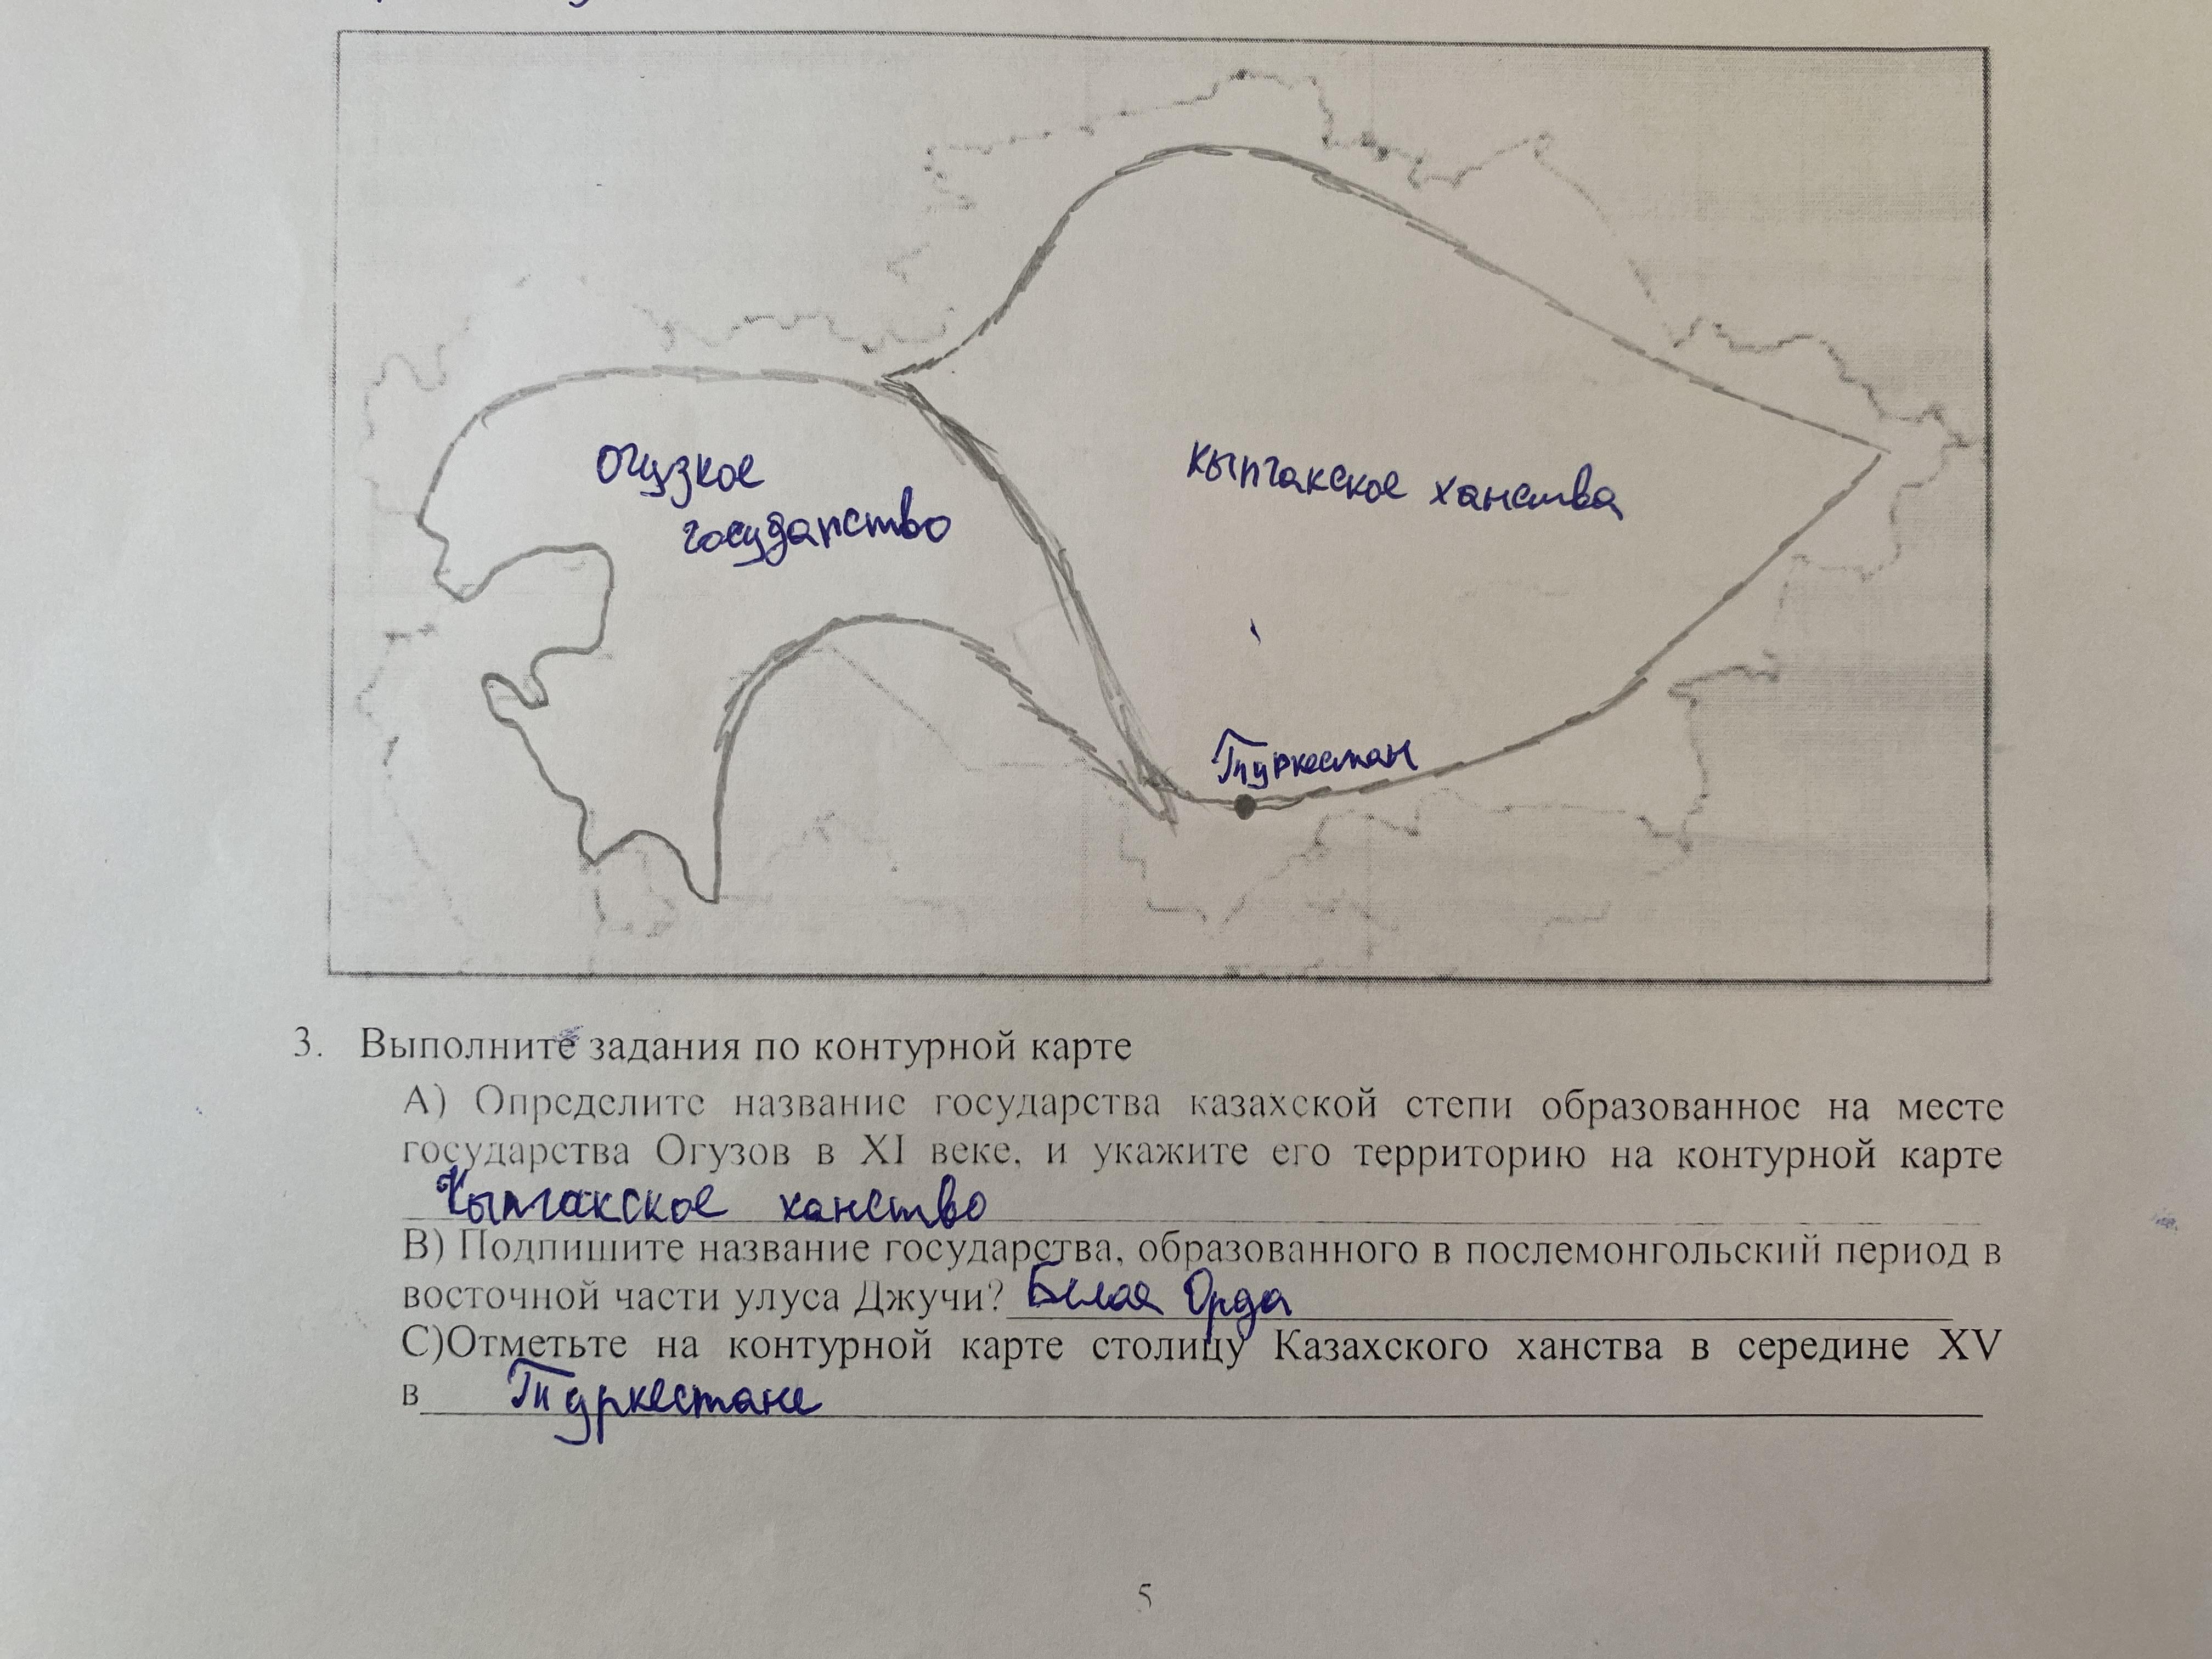 огузкое
государство
кыпчакское ханства
Туркестан
3. Выполните задания по контурной карте
А) Определите название государства казахской степи образованное на месте
государства Огузов в XI веке, и укажите его территорию на контурной карте
Кыпчакское ханство
В) Подпишите название государства, образованного в послемонгольский период в
восточной части улуса Джучи? Белая Орда
С)Отметьте на контурной карте столицу Казахского ханства в середине XV
в Туркестане
5